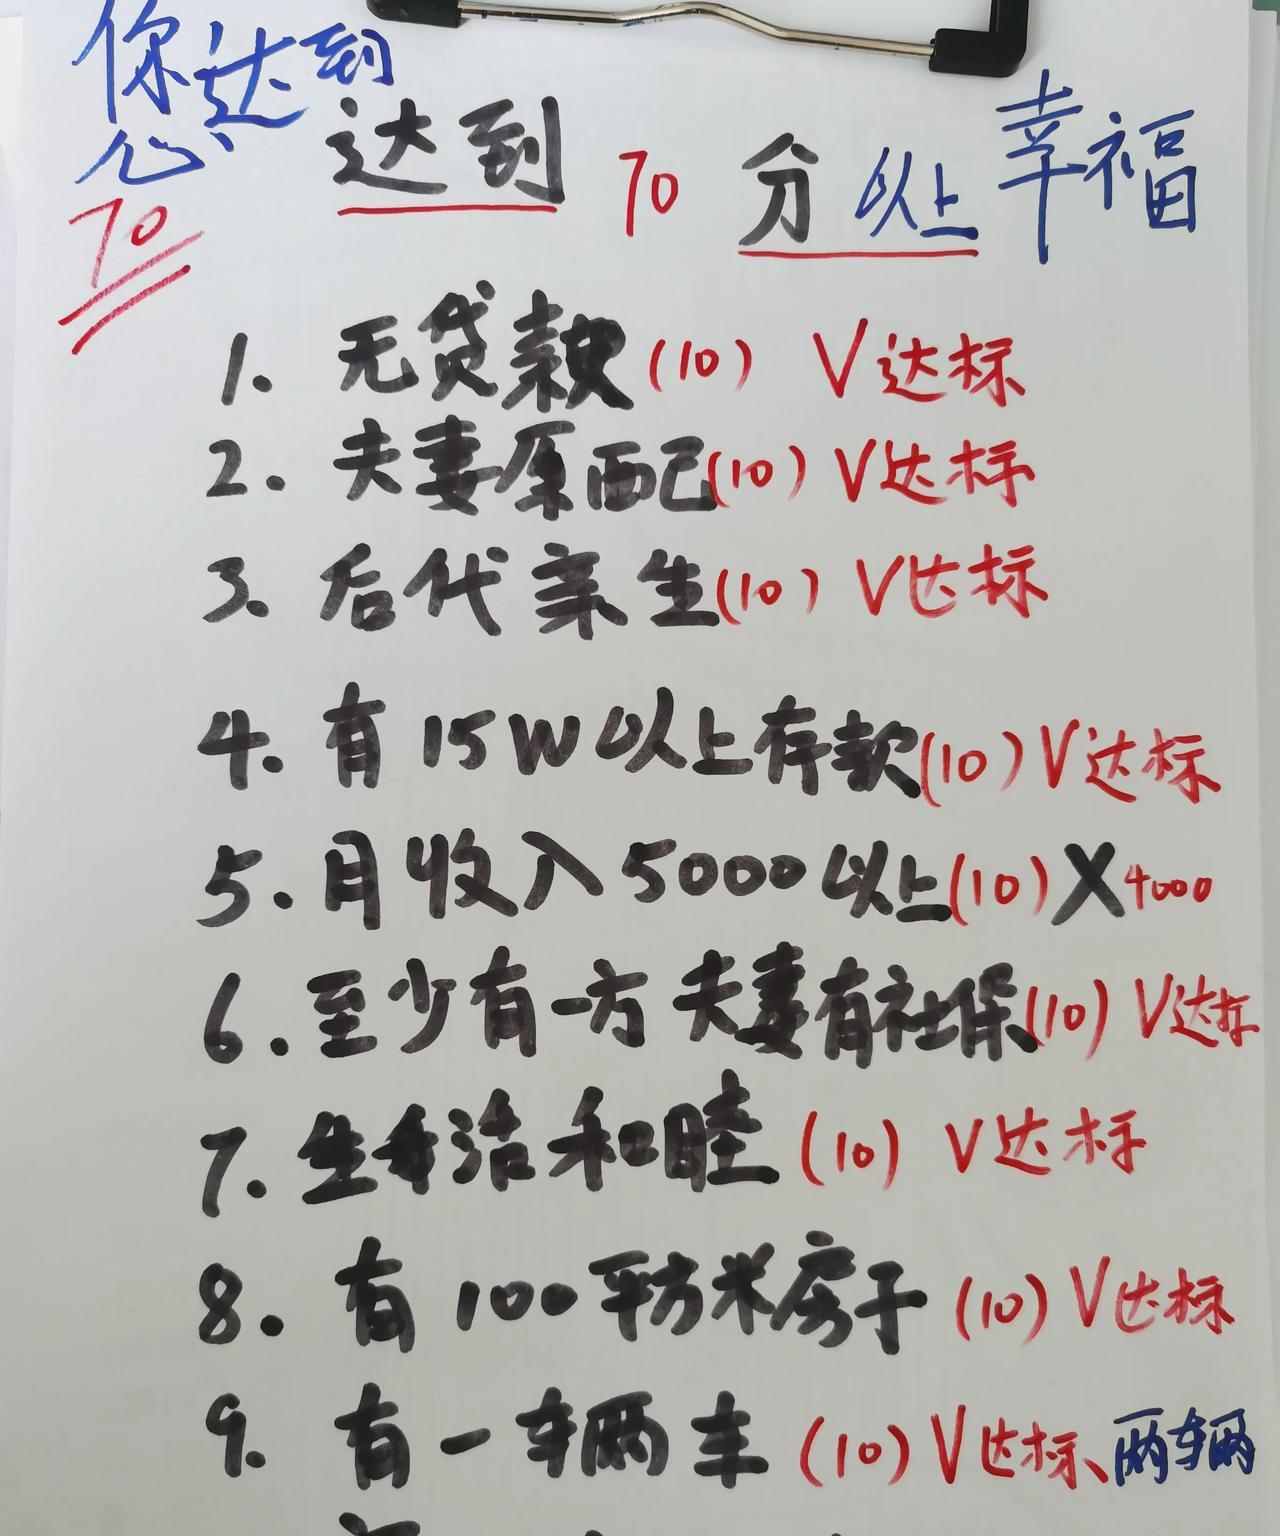 你达到
达到70分以上幸福
70
1. 无贷款(10) V达标
2. 夫妻原配(10) V达标
3. 后代亲生(10) V达标
4. 有15W以上存款(10) V达标
5. 月收入5000以上(10) X4000
6. 至少有一方夫妻有社保(10) V达标
7. 生活和睦(10) V达标
8. 有100平方米房子(10) V达标
9. 有一辆车(10) V达标、两辆